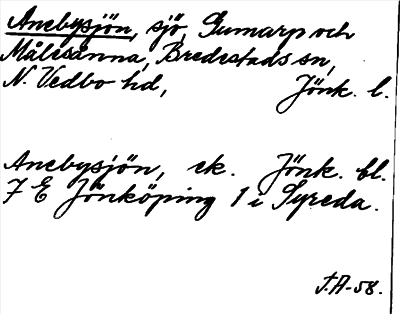 Anebysjön, sjö, Gumarp och
Målesanna, Bredestads sn,
N. Vedbo hd, Jönk. l.
Anebysjön, ek. Jönk. bl.
7 E Jönköping 1 i Syreda.
J.A-58.